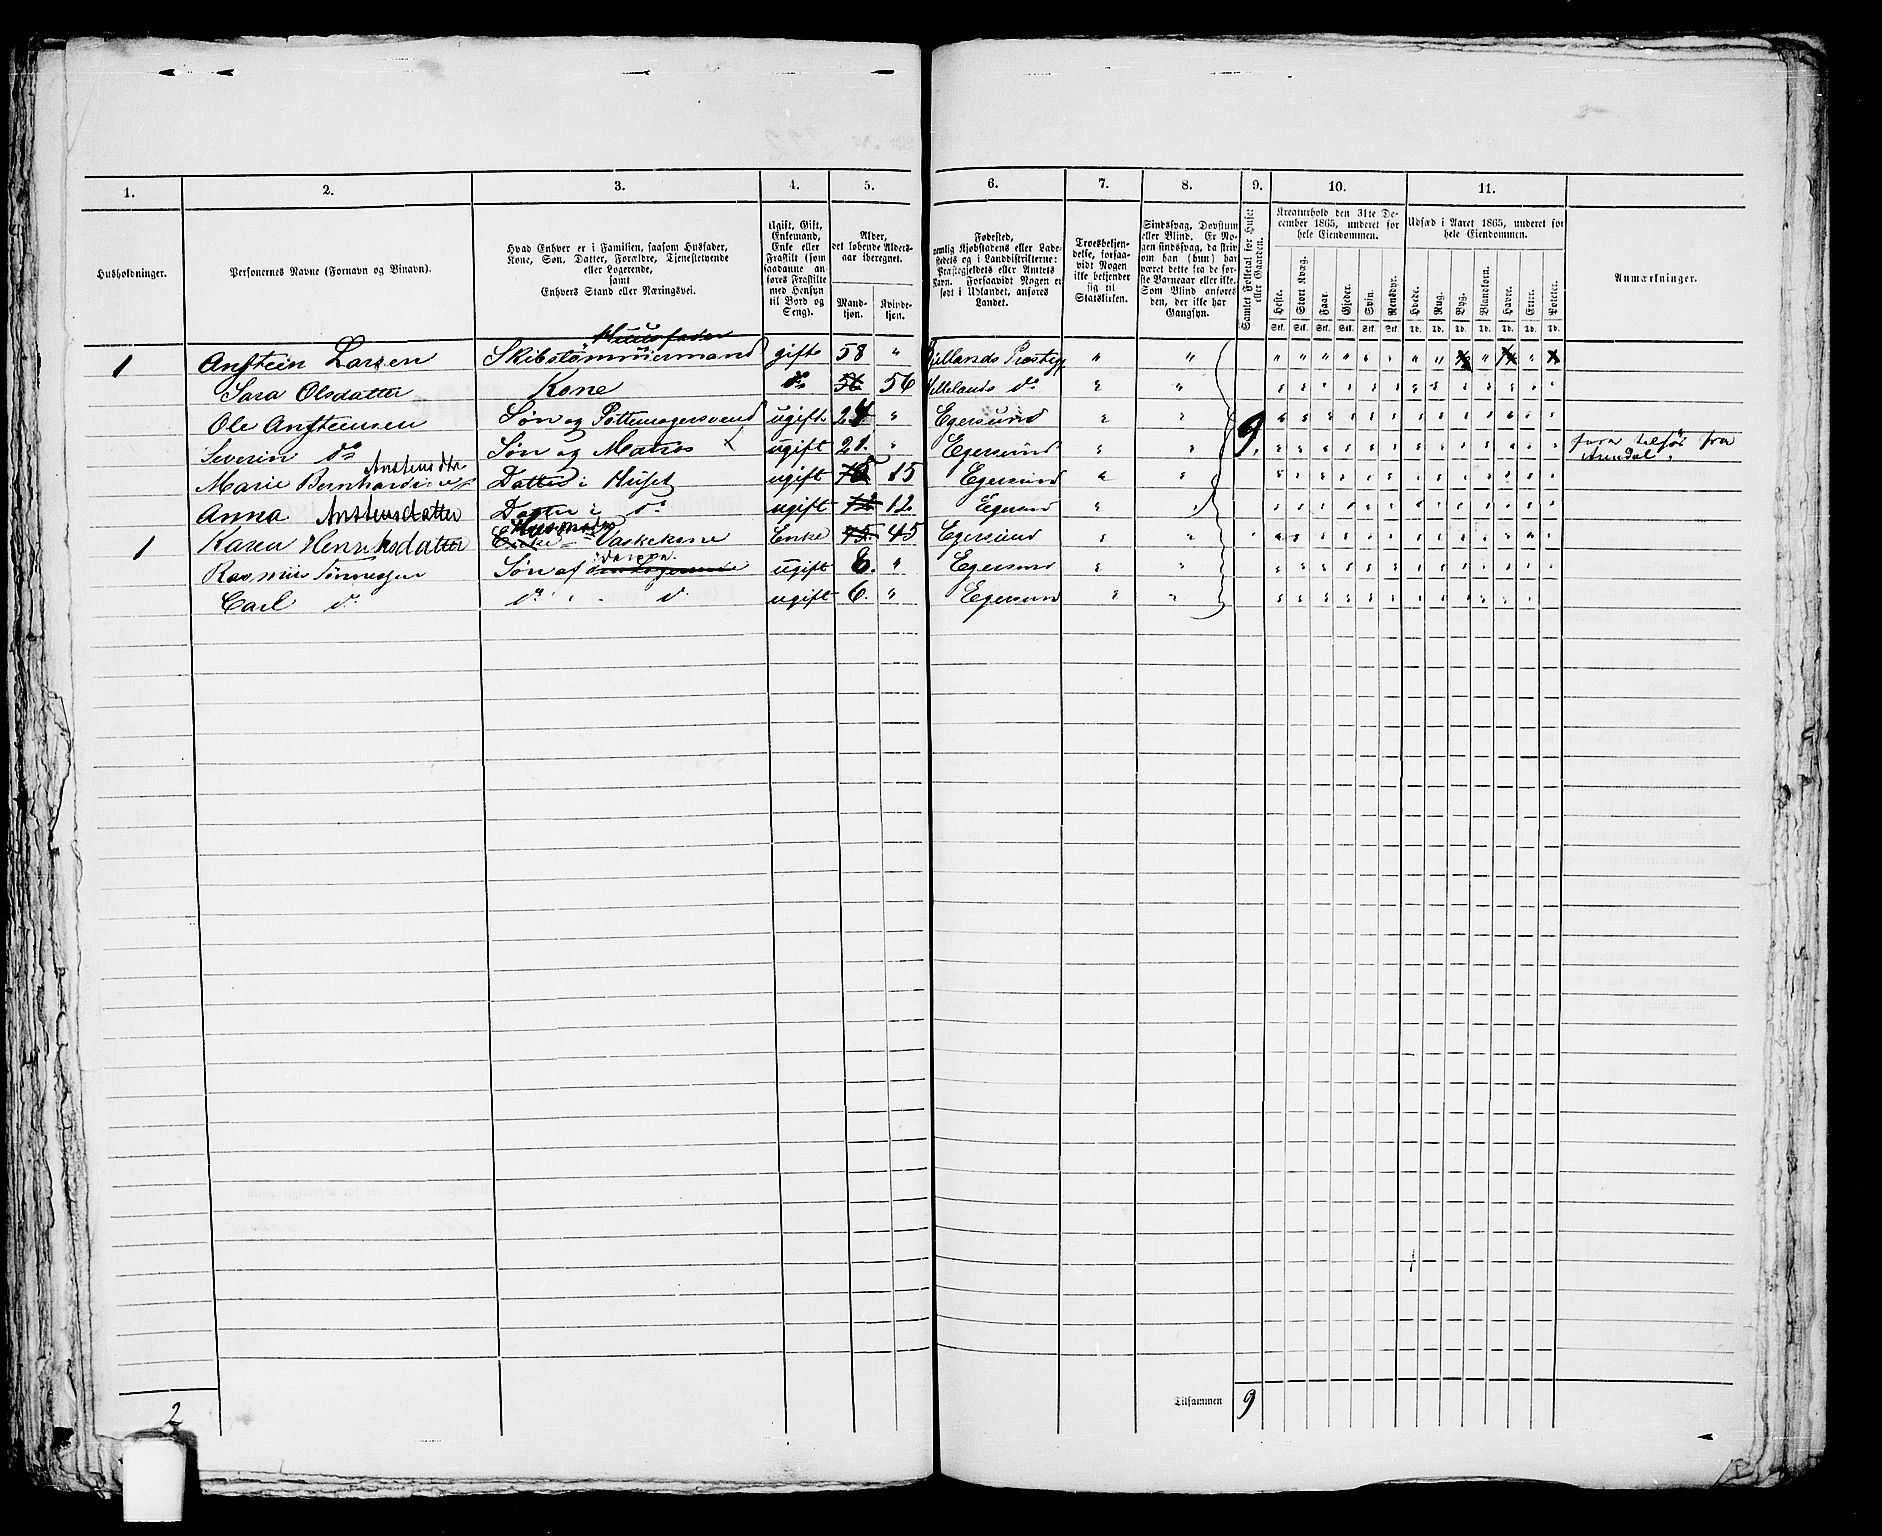 1. 2. 3. 4. 5. 6. 7. 8. 9. 10. 11.
Husholdninger. Personernes Navne (Fornavn og Binavn). Hvad Enhver er i Familien, saasom Husfader, Kone, Søn, Datter, Forældre, Tjenestetyende eller Logerende, samt Enhvers Stand eller Næringsvei. Ugift, Gift, Enkemand, Enke eller Fraskilt (som saadanne anføres Fraskilte med Hensyn til Bord og Seng). Alder, det løbende Alders-aar iberegnet. Mand-kjøn. Kvinde-kjøn. Fødested, nemlig Kjøbstadens eller Ladestedets og i Landdistrikterne: Præstegjeldets eller Amtets Navn. Forsaavidt Nogen er født i Udlandet, anføres Landet. Troesbekjendelse, forsaavidt Nogen ikke bekjender sig til Statskirken. Sindssvag, Døvstum eller Blind. Er Nogen sindssvag, da skrives om han (hun) har været dette fra de første Barneaar eller ikke. Som Blind anføres den, der ikke har Gangsyn. Samlet Folketal for Huset eller Gaarden. Kreaturhold den 31te December 1865, underet for hele Eiendommen. Udsæd i Aaret 1865, underet for hele Eiendommen. Anmærkninger.
Heste. Stort Kvæg. Faar. Gjeder. Svin. Rensdyr. Hvede. Rug. Byg. Blandkorn. Havre. Erter. Poteter.
Stk. Stk. Stk. Stk. Stk. Stk. Td. Td. Td. Td. Td. Td. Td.
Huusfader
1 Ansteen Larsen Skibstømmermand gift 58 " " "
Sara Olsdatter Kone do 56 56 Hellelands do " "
Ole Ansteensen Søn og Pottemagersvend ugift 24 " Egersund " "
Severin do Søn og Matros X ugift 21. " Egersund " " 9. fra Arendal.
Anstensdtr
Marie Bernhardine Datter i Huset ugift 15 Egersund " "
Anna Anstensdatter Datter i do ugift 12 12 Egersund " "
Huusmoder
1 Karen Henriksdatter Enke Vaskekone Enke 45 45 Egersund " "
Rasmus Tønnessen Søn af ugift 8. " Egersund " "
Carl do do do ugift 6. " Egersund " "
2 Tilsammen 9